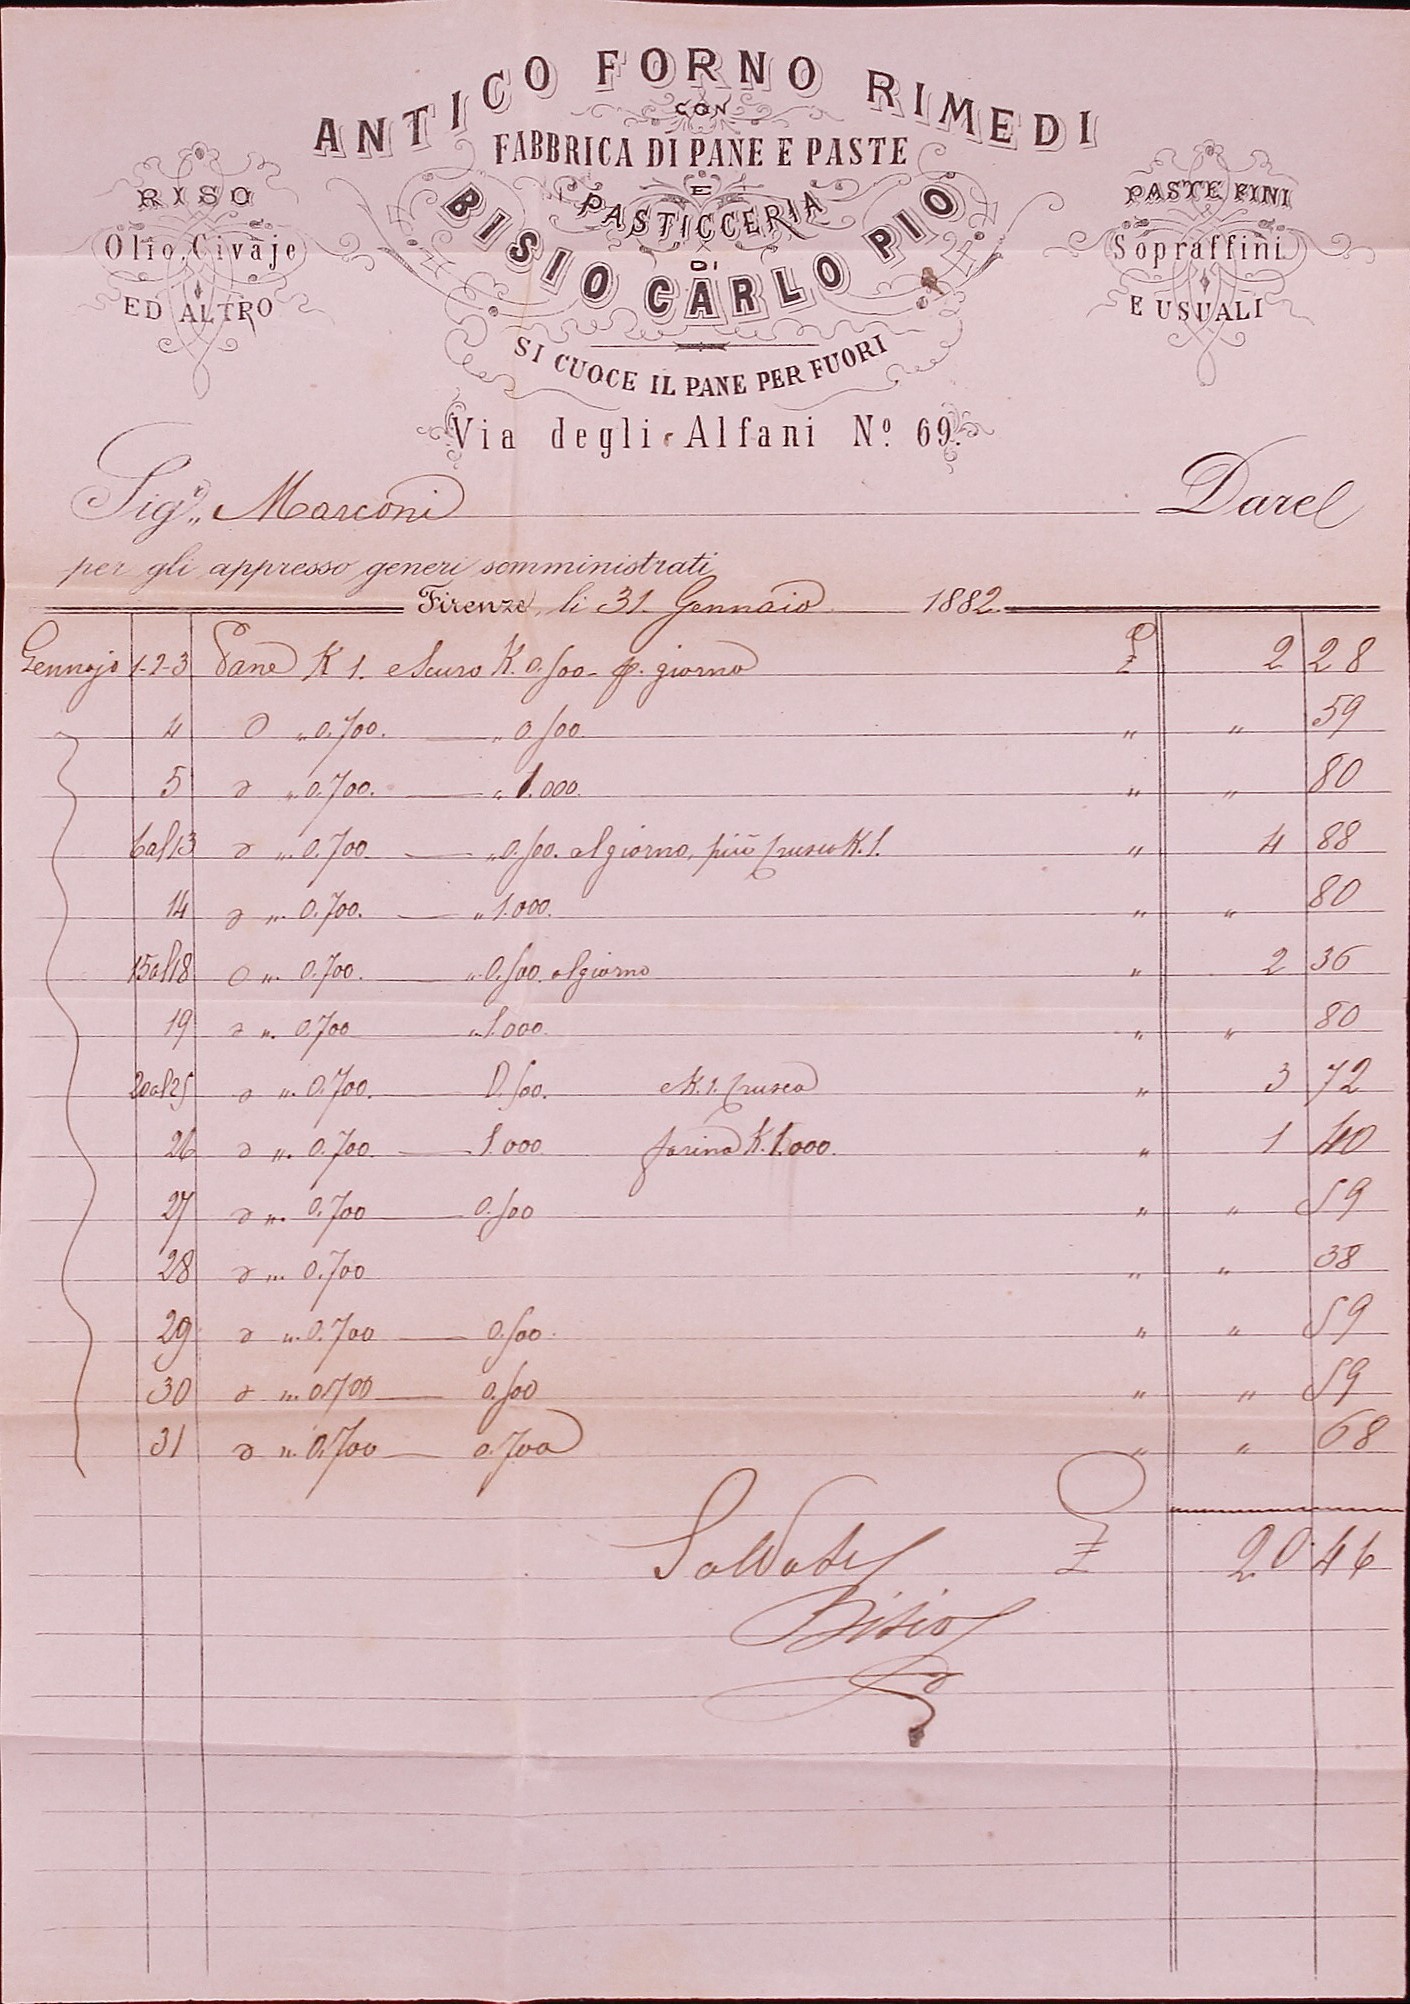 ANTICO FORNO RIMEDI
CON
FABBRICA DI PANE E PASTE
E
PASTICCERIA
DI
BISIO CARLO PIO
SI CUOCE IL PANE PER FUORI
Via degli Alfani Nº 69.
RISO
Olio, Civaje
ED ALTRO
PASTE FINI
Sopraffini
E USUALI
Sigr. Marconi Dare
per gli appresso generi somministrati
Firenze, li 31 Gennaio 1882
Gennajo 1-2-3 Pane K 1. e Scuro K. 0.500 p. giorno £ 2 28
4 D " 0.700. — " 0.500 " " 59
5 D " 0.700. — " 1.000. " " 80
6 al 13 D " 0.700 — " 0.500. al giorno, più crusca K. 1. " 4 88
14 D " 0.700. — " 1.000. " " 80
15 al 18 D " 0.700. — " 0.500. al giorno " 2 36
19 D " 0.700 — " 1.000. " " 80
20 al 25 D " 0.700. — 0.500. e K. 1. crusca " 3 72
26 D " 0.700. — 1.000 farina K. 1.000. " 1 40
27 D " 0.700 — 0.500 " " 59
28 D " 0.700 " " 38
29 D " 0.700 — 0.500. " " 59
30 D " 0.700 — 0.500 " " 59
31 D " 0.700 — 0.700 " " 68
£ 20.46
Saldato
Bisio